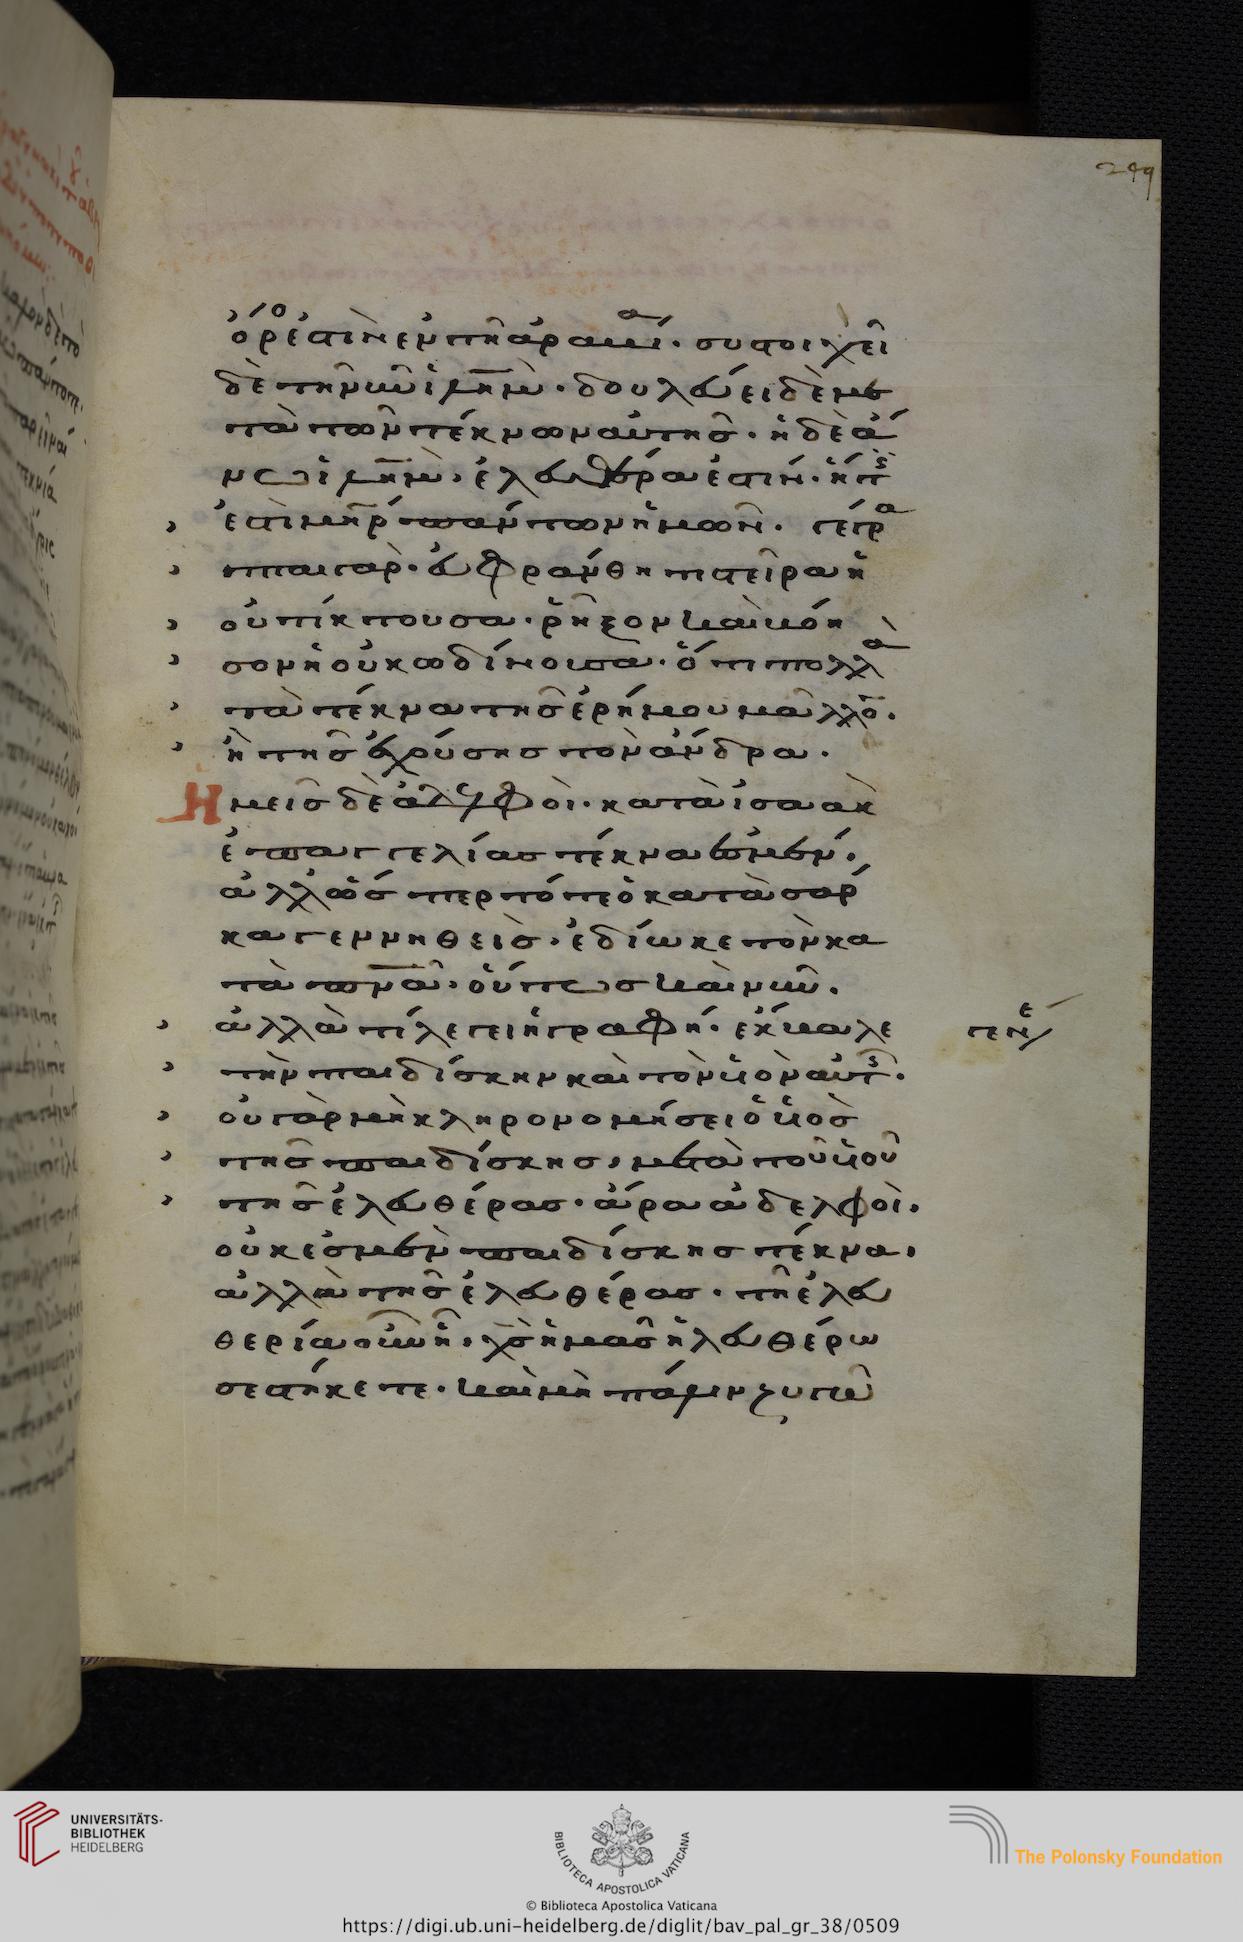 249
ὄρος ἐστὶν ἐν τῆ ἀραβία· συστοιχεῖ
δὲ τῆ νῦν ἱλῆμ· δουλεύει δὲ με
τὰ τῶν τέκνων αὐτῆς· ἡ δὲ ἄ
νω ἱλῆμ· ἐλευθέρα ἐστίν· ἥτις
ἐστὶ μηρ πάντων ἡμῶν· γέγρα
πται γάρ· εὐφράνθητι στεῖρα ἡ
οὐ τίκτουσα· ῥῆξον καὶ βόη
σον ἡ οὐκ ὠδίνουσα· ὅτι πολλὰ
τὰ τέκνα τῆς ἐρήμου μᾶλλον·
ἢ τῆς ἐχούσης τὸν ἄνδρα·
Ἡμεῖς δὲ ἀδελφοὶ· κατὰ ἰσαὰκ
ἐπαγγελίας τέκνα ἐσμέν·
ἀλλ' ὥσπερ τότε ὁ κατὰ σάρ
κα γεννηθεὶς· ἐδίωκε τὸν κα
τὰ πνᾶ· οὕτως καὶ νῦν·
ἀλλὰ τί λέγει ἡ γραφή· ἔκβαλε
γενέ
τὴν παιδίσκην καὶ τὸν υἱὸν αὐτῆς·
οὐ γὰρ μὴ κληρονομήσει ὁ υἱὸς
τῆς παιδίσκης, μετὰ τοῦ υἱοῦ
τῆς ἐλευθέρας· ἄρα ἀδελφοὶ·
οὐκ ἐσμὲν παιδίσκης τέκνα,
ἀλλὰ τῆς ἐλευθέρας· τῆ ἐλευ
θερία οὖν ἧ, χς ἡμᾶς ἠλευθέρω
σε στήκετε· καὶ μὴ πάλιν ζυγῶ
UNIVERSITÄTS-
BIBLIOTHEK
HEIDELBERG
BIBLIOTECA APOSTOLICA VATICANA
© Biblioteca Apostolica Vaticana
The Polonsky Foundation
https://digi.ub.uni-heidelberg.de/diglit/bav_pal_gr_38/0509